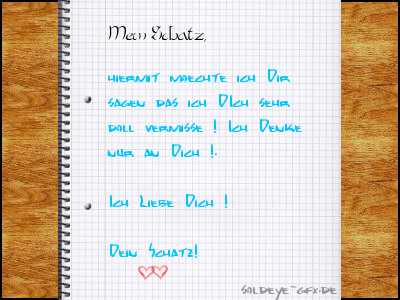 Mein Schatz,
hiermit moechte ich Dir
sagen das ich DIch sehr
doll vermisse ! Ich Denke
nur an Dich !.
Ich Liebe Dich !
Dein Schatz!
soldeye-gfx.de